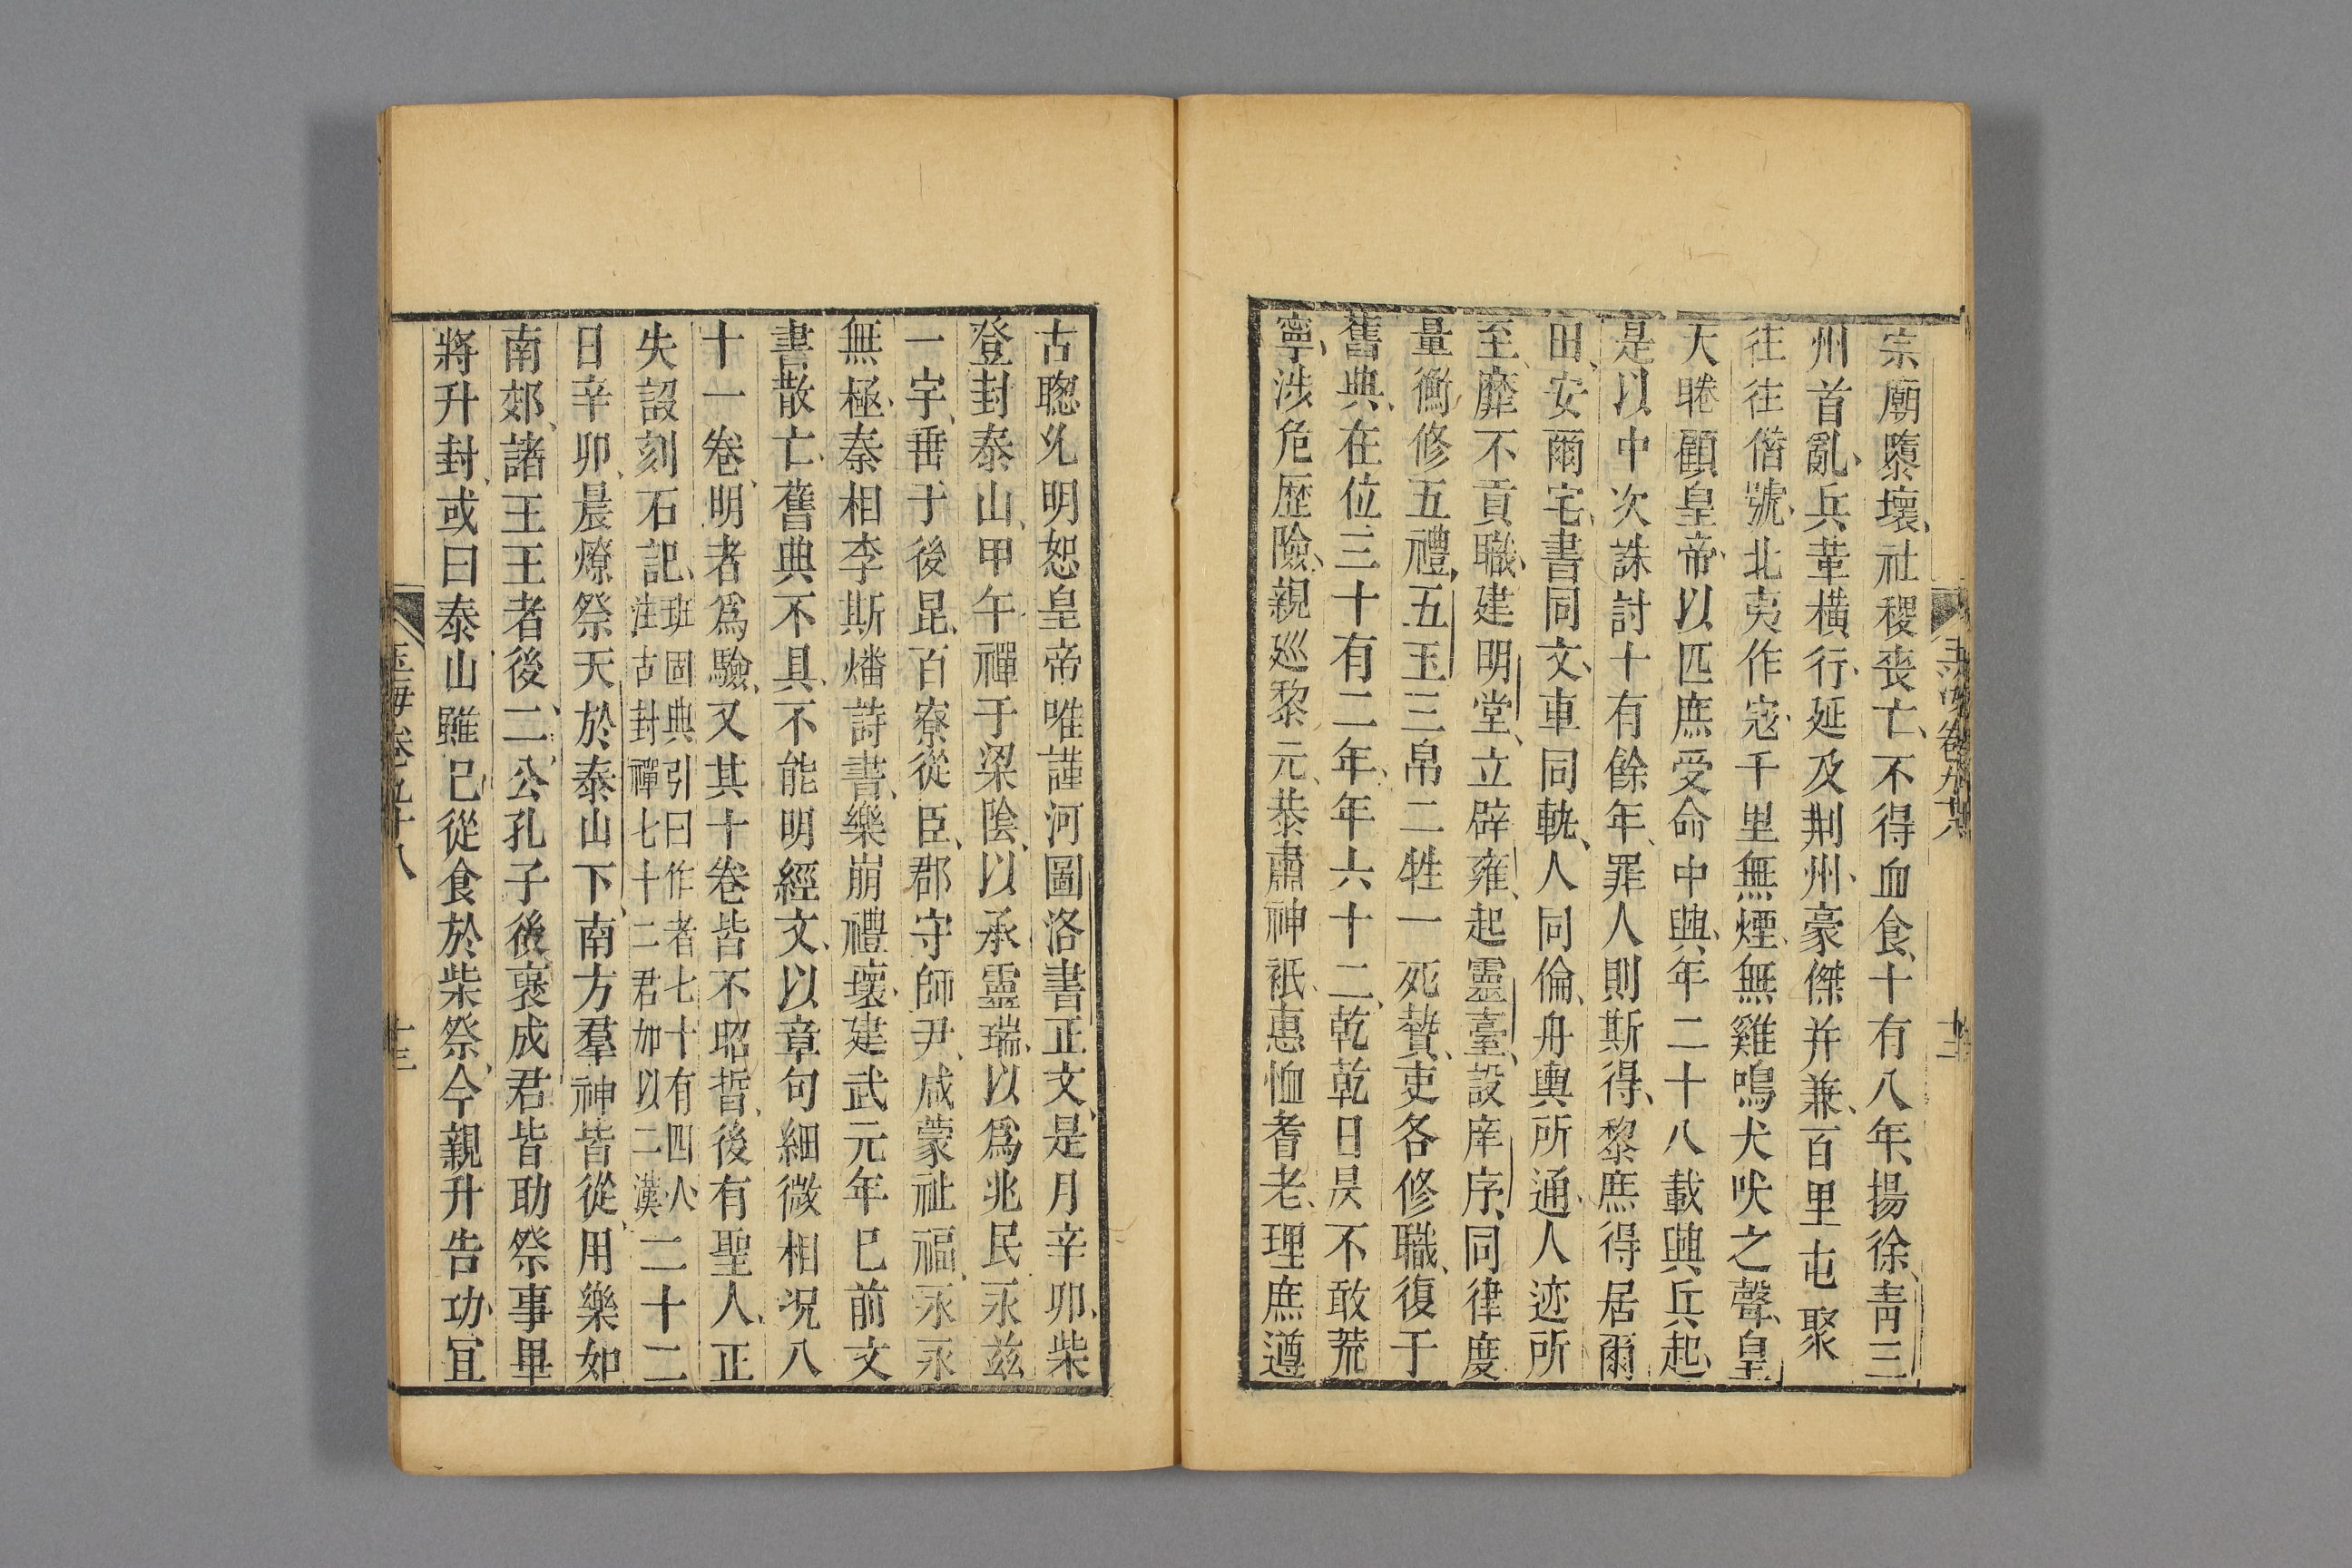 宗廟隳壞社稷喪亡不得血食十有八年揚徐青三
州首亂兵革橫行延及荆州豪傑并兼百里屯聚
往往僭號北夷作寇千里無煙無雞鳴犬吠之聲皇
天睠顧皇帝以匹庶受命中興年二十八載興兵起
是以中次誅討十有餘年罪人則斯得黎庶得居爾
田安爾宅書同文車同軌人同倫舟輿所通人迹所
至靡不貢職建明堂立辟雍起靈臺設庠序同律度
量衡修五禮五玉三帛二牲一死贄吏各修職復于
舊典在位三十有二年年六十二乾乾日昃不敢荒
寧涉危歷險親巡黎元恭肅神祇惠恤耆老理庶遵
古聰允明恕皇帝唯謹河圖洛書正文是月辛卯柴
登封泰山甲午禪于梁陰以承靈瑞以爲兆民永兹
一宇垂于後昆百寮從臣郡守師尹咸蒙祉福永永
無極秦相李斯燔詩書樂崩禮壞建武元年已前文
書散亡舊典不具不能明經文以章句細微相况八
十一卷明者爲驗又其十卷皆不昭晢後有聖人正
失誤刻石記班固典引曰作者七十有四人
注古封禪七十二君加以二漢二十二
日辛卯晨燎祭天於泰山下南方羣神皆從用樂如
南郊諸王王者後二公孔子後褒成君皆助祭事畢
將升封或曰泰山雖已從食於柴祭今親升告功宜
玉海卷九十八
十三